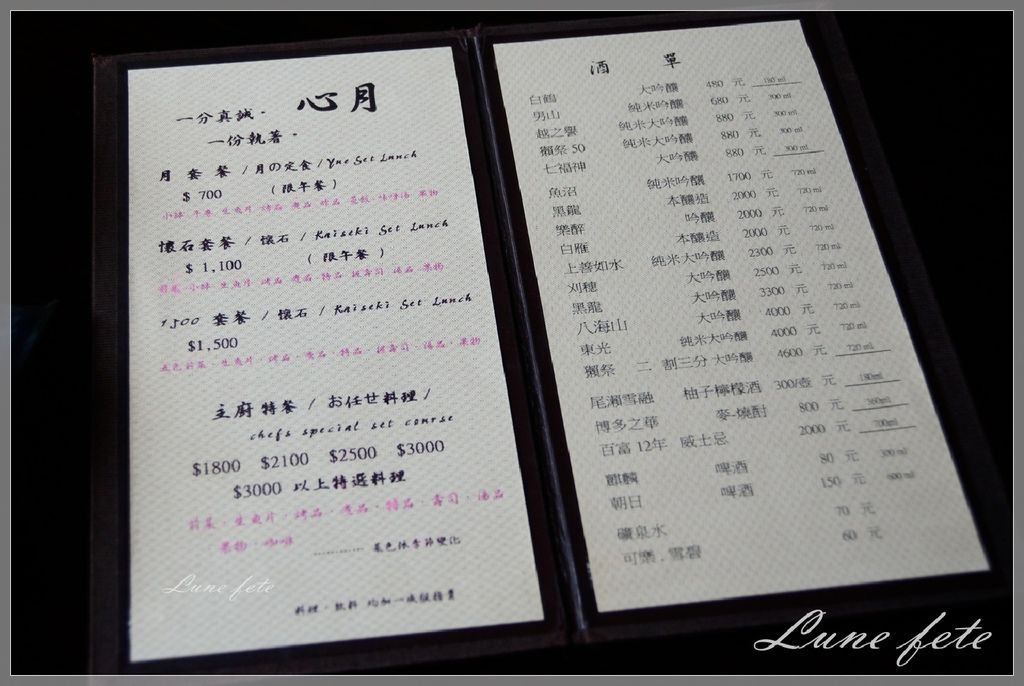 心月
一分真誠。
一份執著。
月套餐 / 月の定食 / Yue Set Lunch
$ 700 （限午餐）
懷石套餐 / 懷石 / Kaiseki Set Lunch
$ 1,100 （限午餐）
前菜·小缽·生魚片·烤品·煮品·特品·握壽司·湯品·果物
1500 套餐 / 懷石 / Kaiseki Set Lunch
$1,500
五色前菜·生魚片·烤品·煮品·特品·握壽司·湯品·果物
主廚特餐 / お任せ料理 /
chefs special set course
$1800 $2100 $2500 $3000
$3000 以上特選料理
前菜·生魚片·烤品·煮品·特品·壽司·湯品
·果物·咖啡
............ 菜色依季節變化
料理·飲料 均加一成服務費
酒 單
白鶴 大吟釀 480 元 180 ml
男山 純米吟釀 680 元 300 ml
越之譽 純米大吟釀 880 元 300 ml
獺祭 50 純米大吟釀 880 元 300 ml
七福神 大吟釀 880 元 300 ml
魚沼 純米吟釀 1700 元 720 ml
黑龍 本釀造 2000 元 720 ml
樂醉 吟釀 2000 元 720 ml
白雁 本釀造 2000 元 720 ml
上善如水 純米大吟釀 2300 元 720 ml
刈穗 大吟釀 2500 元 720 ml
黑龍 大吟釀 3300 元 720 ml
八海山 大吟釀 4000 元 720 ml
東光 純米大吟釀 4000 元 720 ml
獺祭 二 割三分 大吟釀 4600 元 720 ml
尾瀨雪融 柚子檸檬酒 300/壺 元 180ml
博多之華 麥-燒酎 800 元 360ml
百富 12年 威士忌 2000 元 700ml
麒麟 啤酒 80 元
朝日 啤酒 150 元 600 ml
礦泉水 70 元
可樂 . 雪碧 60 元
Lune fete
Lune fete